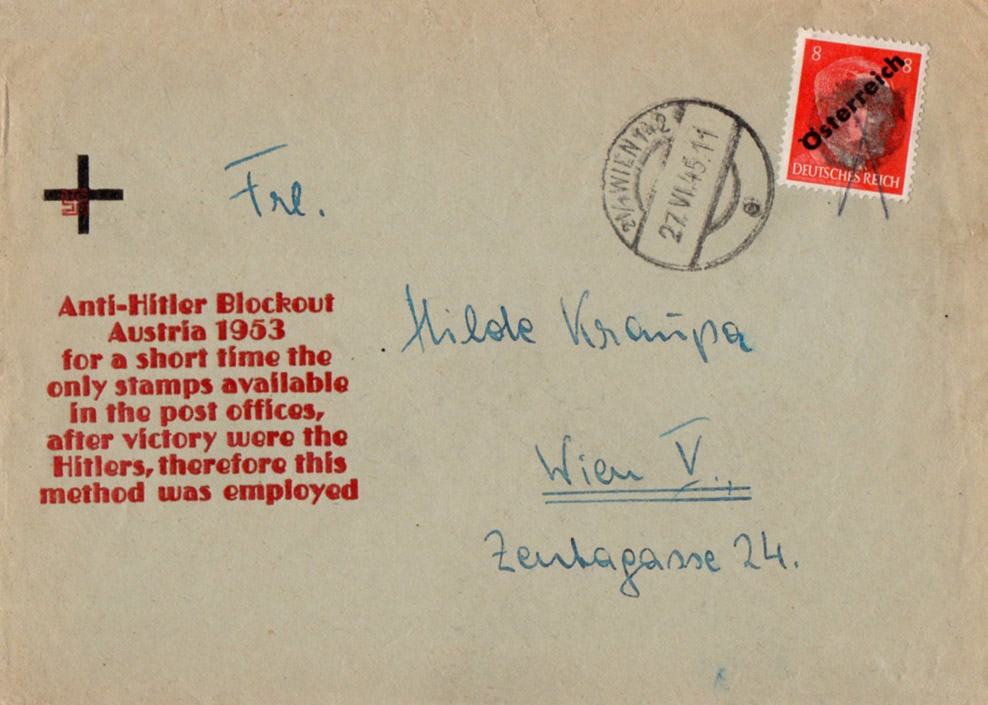 Frl.
Hilde Kraupa
Wien V.,
Zentagasse 24.
Anti-Hitler Blockout
Austria 1953
for a short time the
only stamps available
in the post offices,
after victory were the
Hitlers, therefore this
method was employed
WIEN
27.VI.45.11
8 8
Österreich
DEUTSCHES REICH